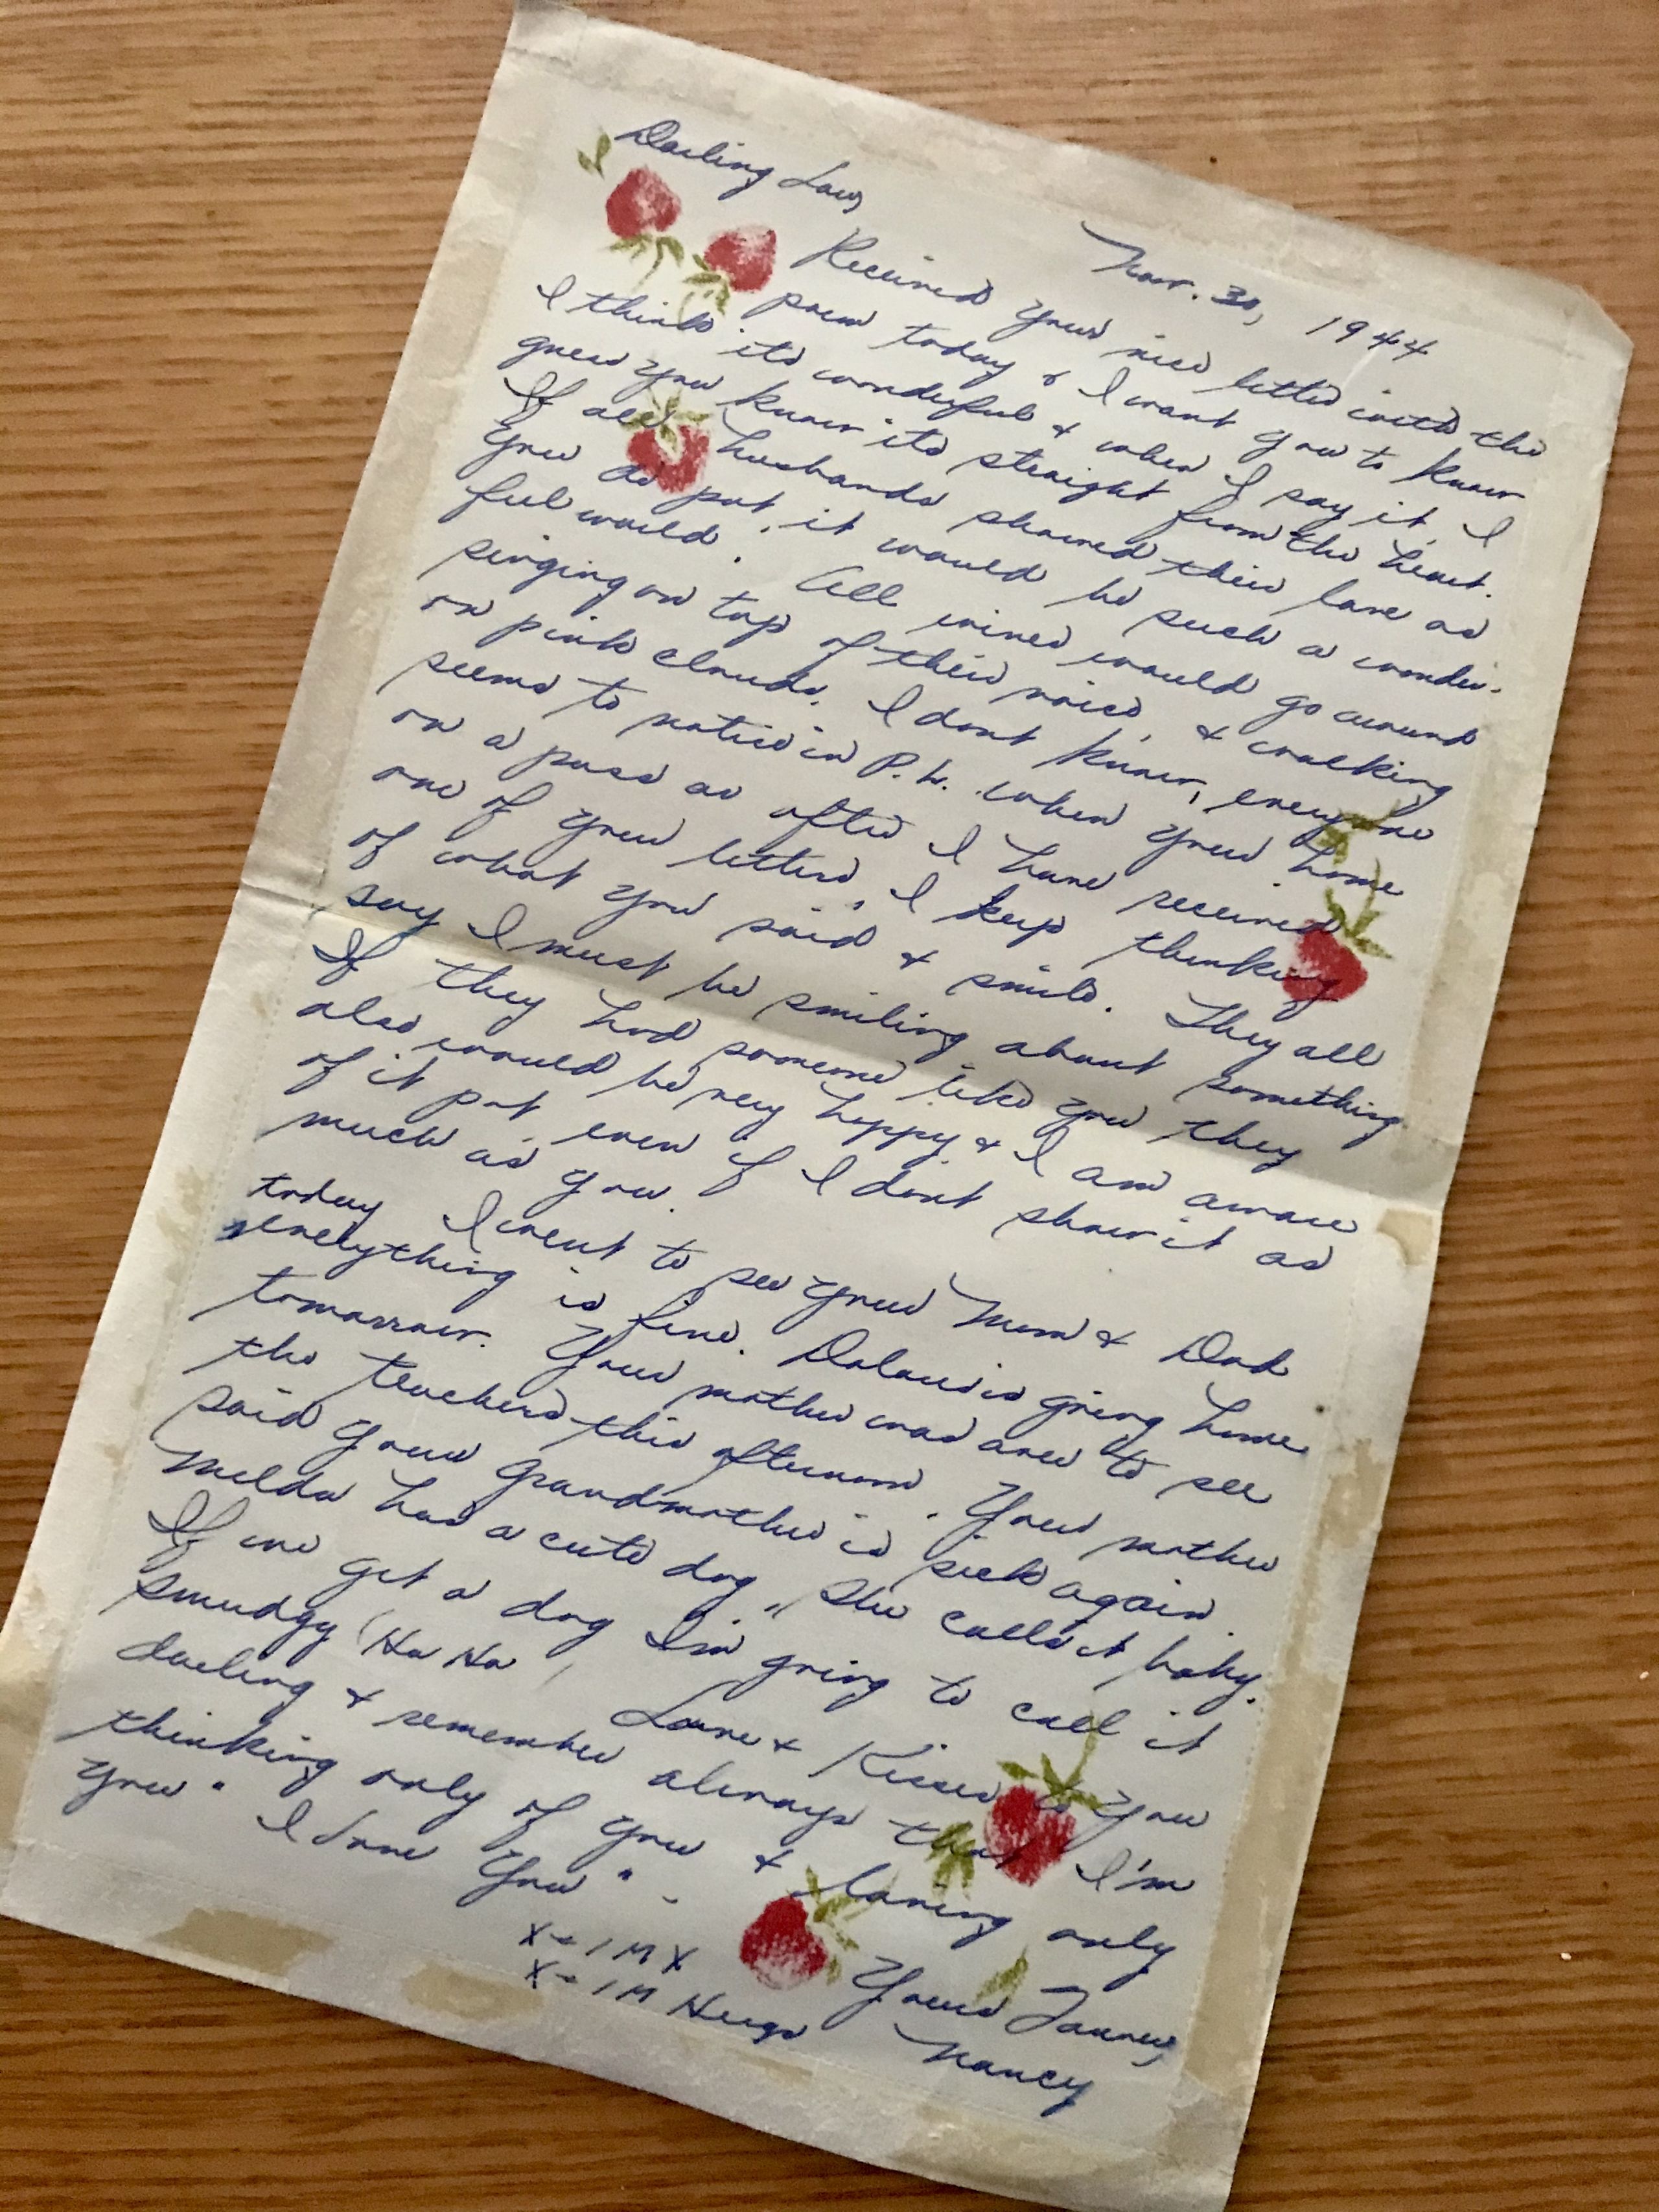 Darling Lou,
Nov. 30, 1944
Received your nice letter with the
poem today & I want you to know
I think its wonderful & when I say it, I
guess you know its straight from the heart.
If all husbands showed their love as
you do pat, it would be such a wonder-
ful world. All wives would go around
singing on top of their voice, & walking
on pink clouds. I dont know, everyone
seems to notice in P.W. when your home
on a pass or after I have received
one of your letters, I keep thinking
of what you said & smile. They all
say I must be smiling about something
If they had someone like you they
also would be very happy & I am aware
of it pat even if I dont show it as
much as you.
today I went to see your Mom & Dad
everything is fine. Dolores is going home
tomorrow. Your mother was over to see
the teachers this afternoon. Your mother
said your Grandmother is sick again.
Melda has a cute dog, she calls it baby.
If we get a dog Im going to call it
smudgy (Ha Ha) Love & Kisses to You
darling & remember always that I'm
thinking only of you & loving only
you" I Love You".
X - 1 M X
X - 1 M Hugs
Yours Forever,
Nancy